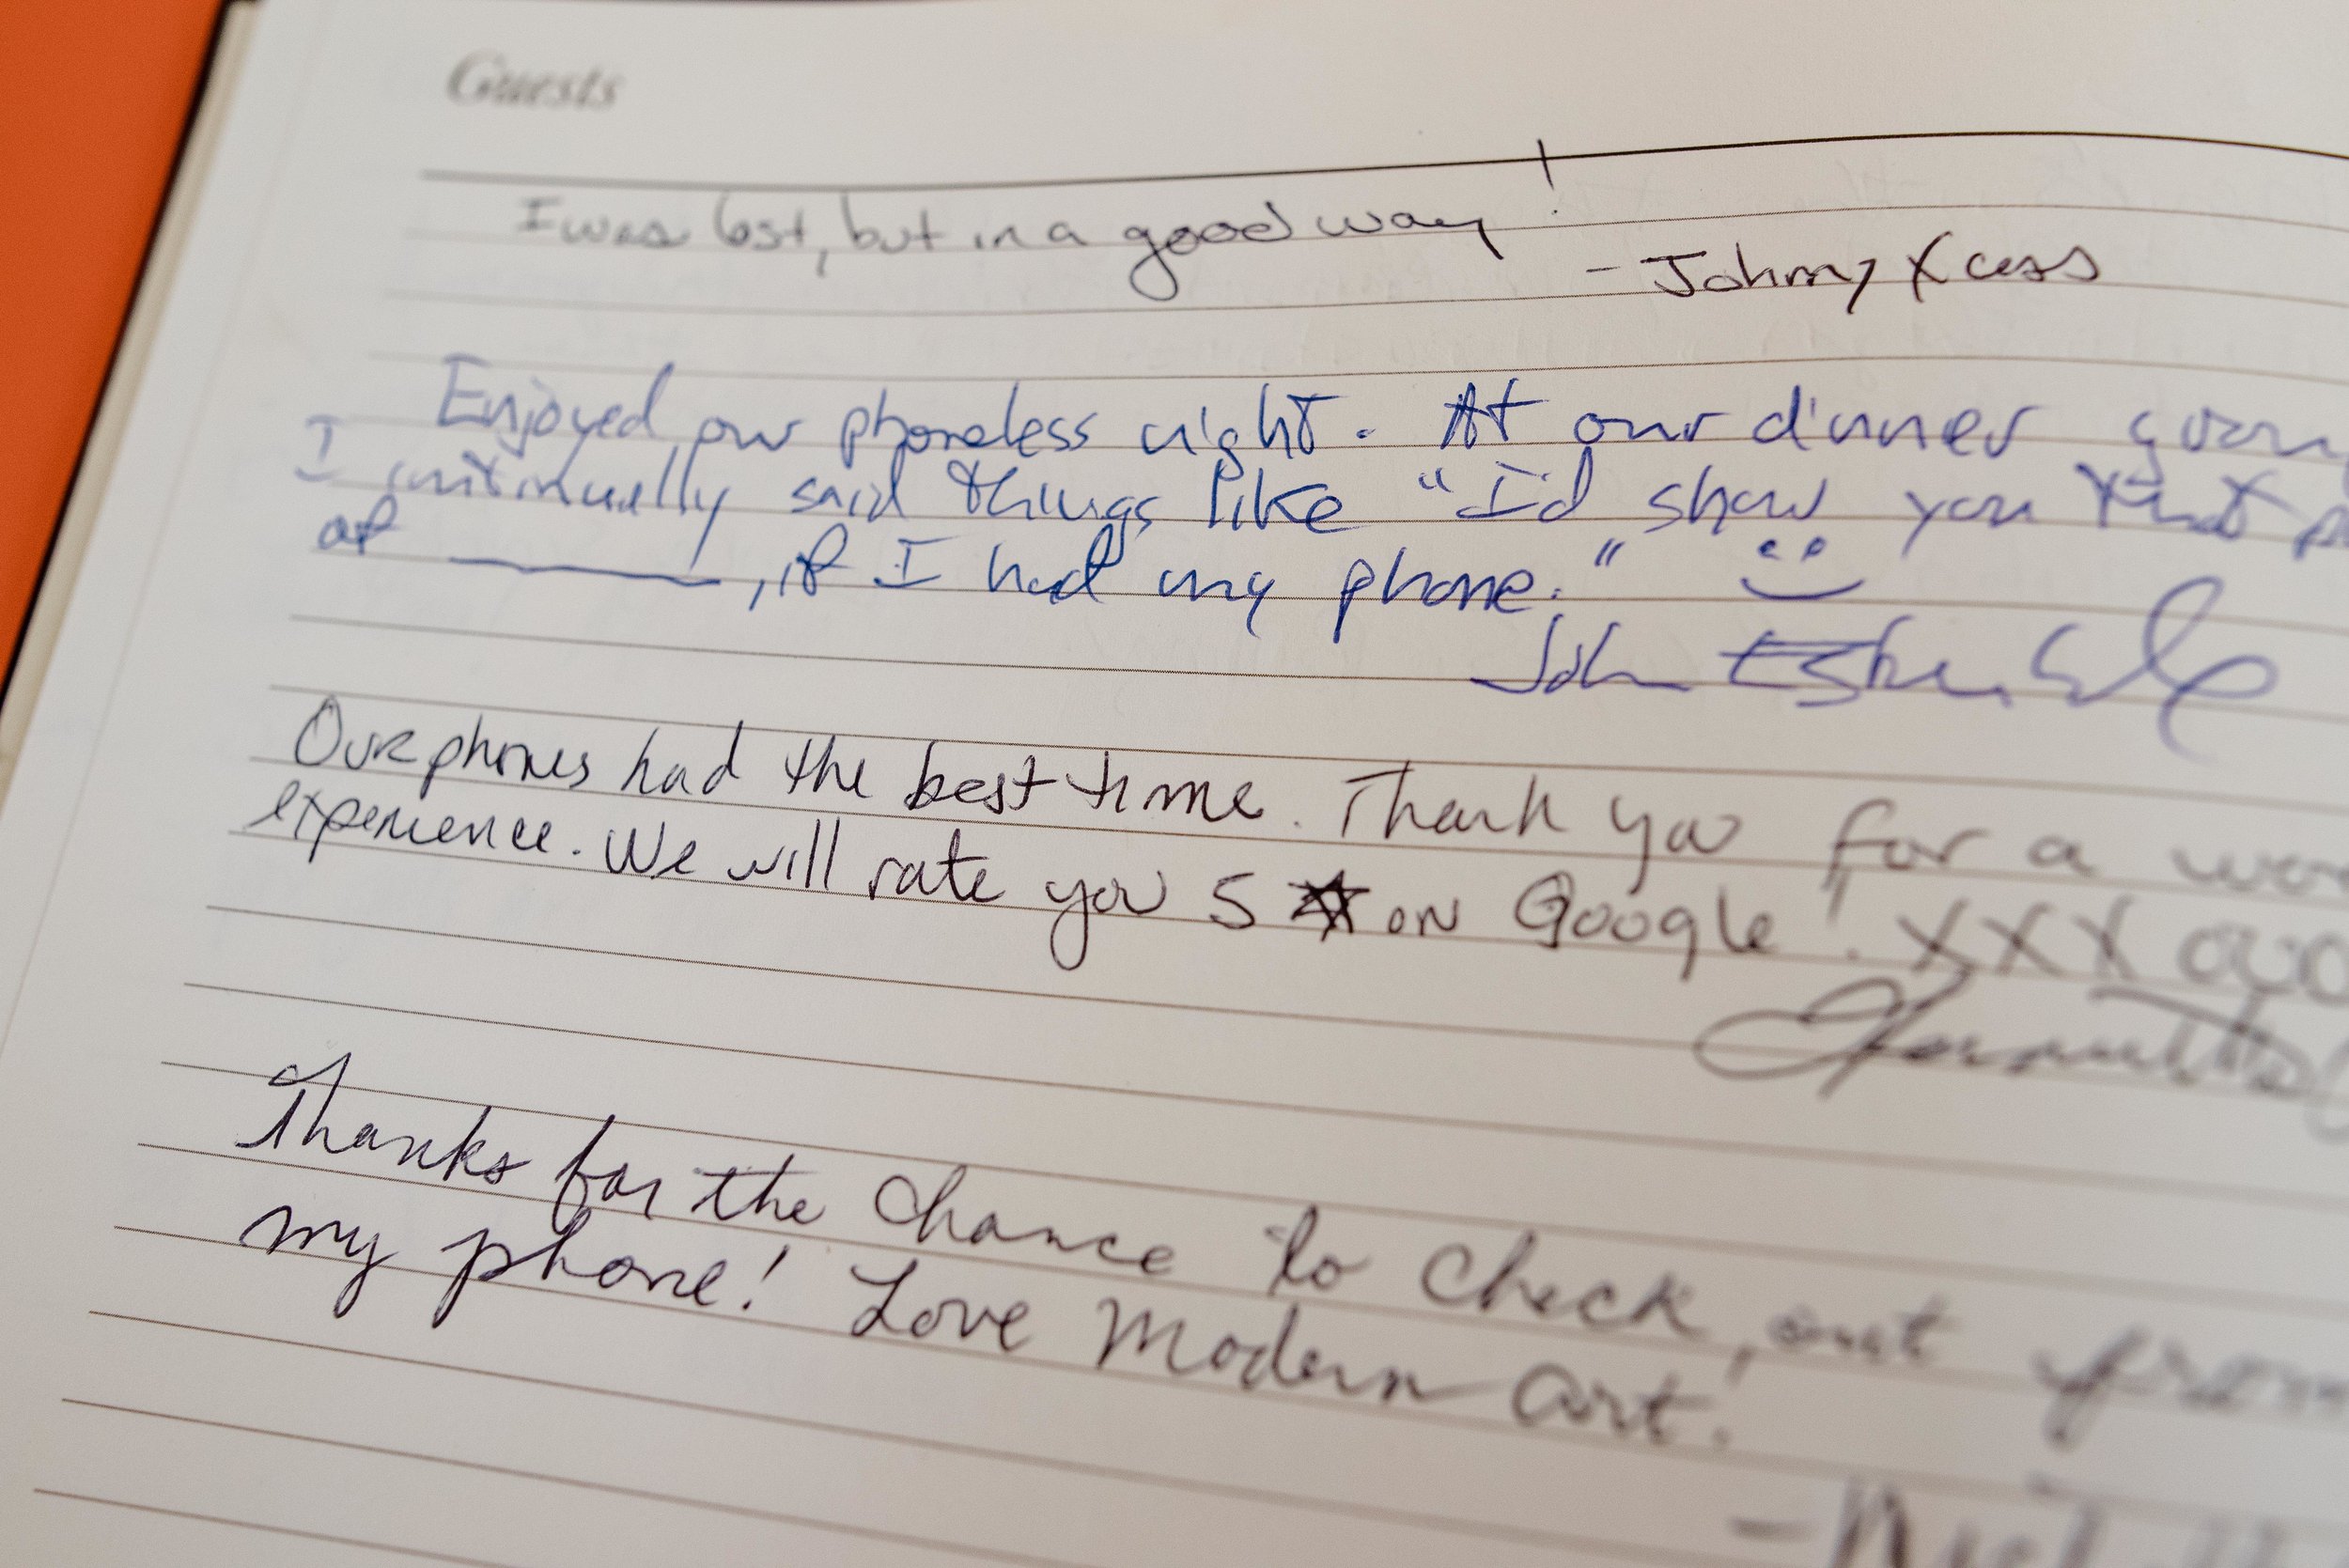 Guests
I was lost, but in a good way!
- Johnny Xcess
Enjoyed our phoneless night. At our dinner
I continually said things like "I'd show you that
of ______, if I had my phone." :)
John
Our phones had the best time. Thank you for a
experience. We will rate you 5 ★ on Google! XXX OOO
Thanks for the chance to check out from
my phone! Love Modern Art!